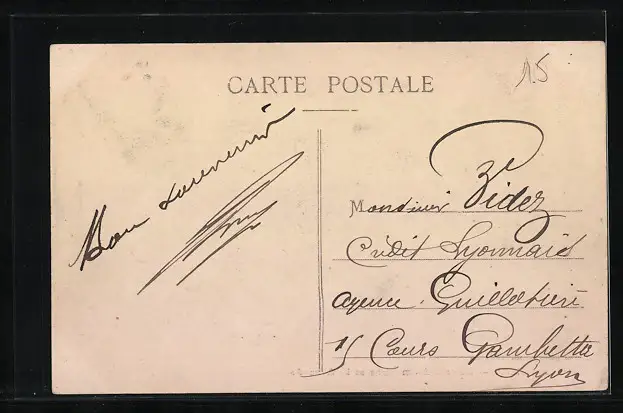 CARTE POSTALE
15
Bon souvenir
Monsieur Videz
Crédit Lyonnais
Agence Guillotière
15 Cours Gambetta
Lyon